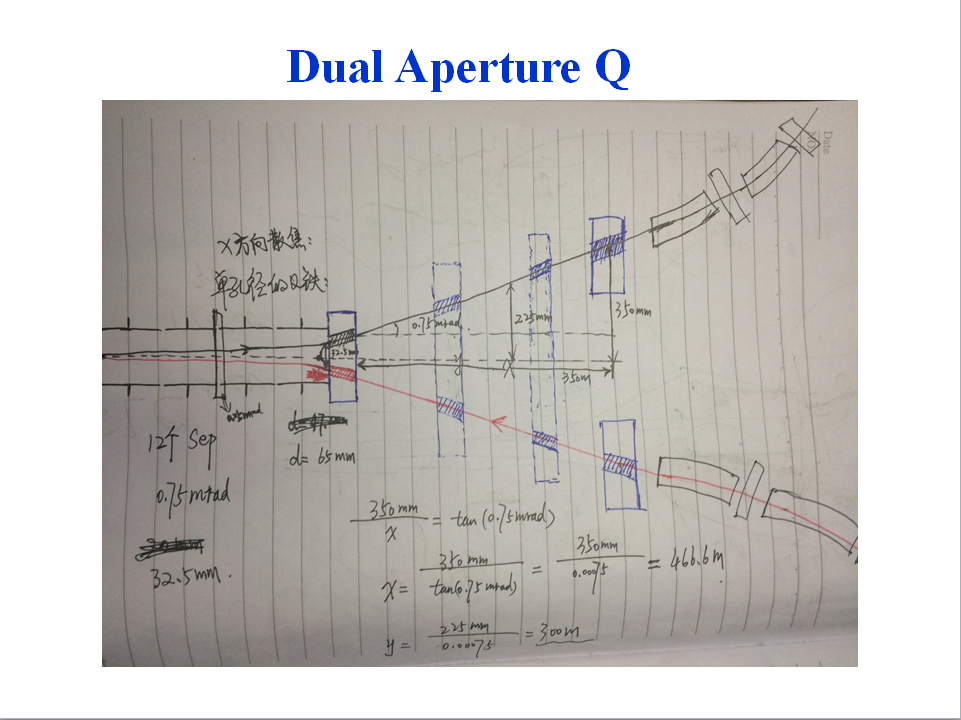 Dual Aperture Q
Date
NO
x方向散焦:
单孔径的Q铁:
0.75mrad
225mm
350mm
32.5m
y
x
350m
0.75mrad
d=47
d= 65mm
12个 Sep
0.75mrad
32.5mm.
350mm / x = tan (0.75mrad)
x= 350mm / tan(0.75mrad) = 350mm / 0.00075 = 466.6m
y= 225mm / 0.00075 = 300m